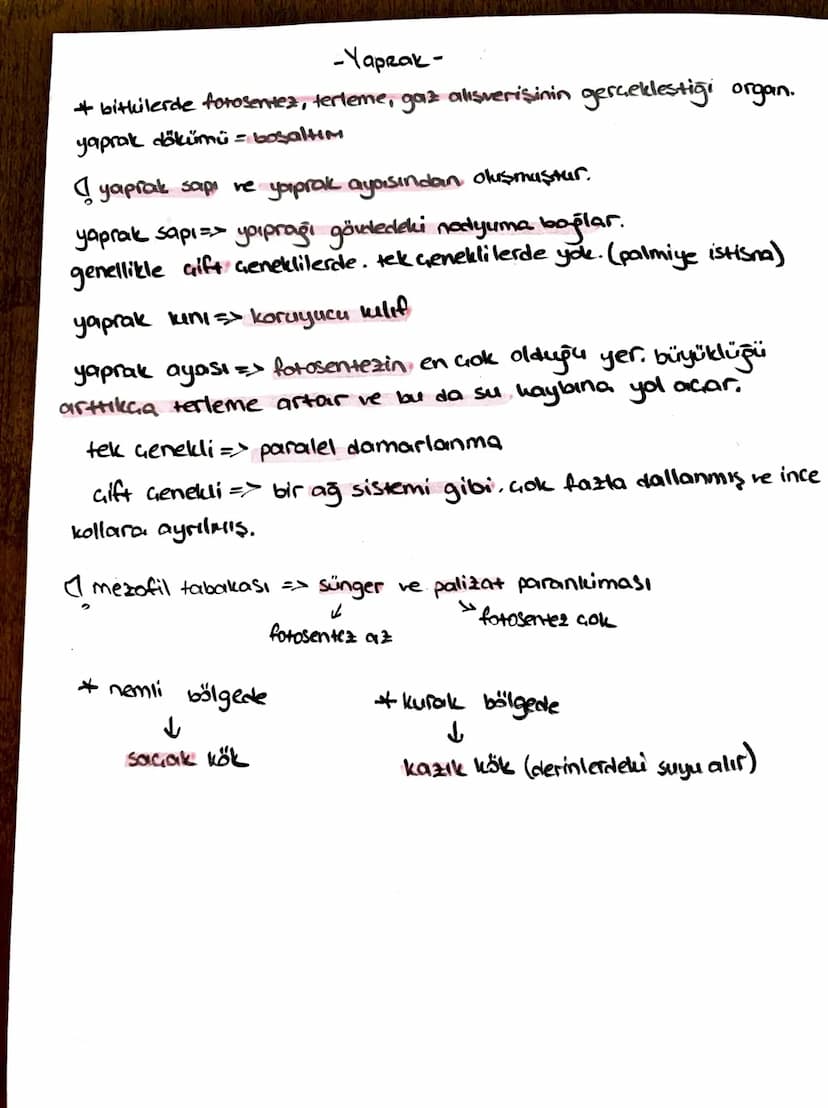 -Yaprak-
* bitkilerde fotosentez, terleme, gaz alışverişinin gerçekleştiği organ.
yaprak dökümü = boşaltım
yaprak sapı ve yaprak ayasından oluşmuştur.
yaprak sapı => yaprağı gövdedeki nodyuma bağlar.
genellikle çift çeneklilerde. tek çeneklilerde yok. (palmiye istisna)
yaprak kını => koruyucu kılıf
yaprak ayası => fotosentezin en çok olduğu yer. büyüklüğü
arttıkça terleme artar ve bu da su kaybına yol açar.
tek çenekli => paralel damarlanma
çift çenekli => bir ağ sistemi gibi. çok fazla dallanmış ve ince
kollara ayrılmış.
mezofil tabakası => sünger ve palizat parankiması
fotosentez az
fotosentez çok
* nemli bölgede
↓
saçak kök
* kurak bölgede
↓
kazık kök (derinlerdeki suyu alır)